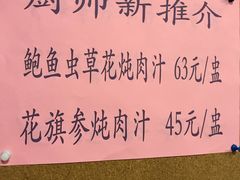 厨师新推介
鲍鱼虫草花炖肉汁 63元/盅
花旗参炖肉汁 45元/盅